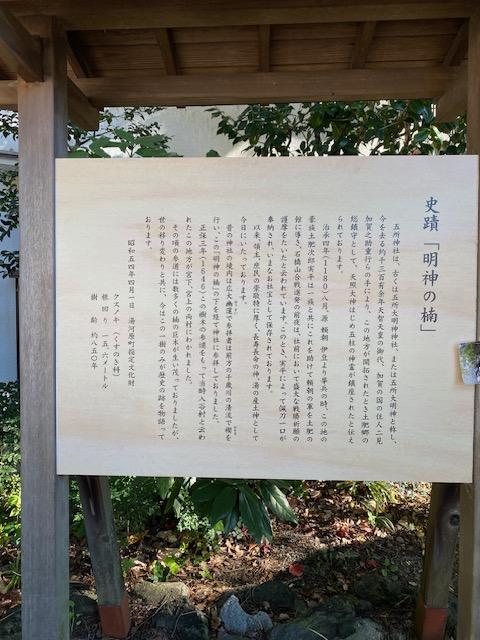 史蹟「明神の楠」
五所神社は、古くは五所大明神神社、または五所大明神と称し、
今を去る約千三百有余年天智天皇の御代、加賀の国の住人二見
加賀之助重行らの手により、この地方が開拓されたとき土肥郷の
総鎮守として、天照大神はじめ五柱の神霊が鎮座されたと伝え
られております。
治承四年(1180)八月、源 頼朝 伊豆より挙兵の時、この地の
豪族土肥次郎実平は一族と共にこれを助けて頼朝の軍を土肥の
館に導き、石橋山合戦進発の前夜は、社前において盛大な戦勝祈願の
護摩をたいたと云われています。このとき、実平によって佩刀一口が
奉納され、いまなお社宝として保存されております。
以来、領主、庶民の崇敬特に厚く、長寿長命の神、湯の産土神として
今日にいたっております。
昔の神社の境内は広大幽邃で参拝者は前方の千歳川の清流で禊を
行い、この「明神の楠」の下を経て神社に参拝しておりました。
正保三年(1646)この樹木の参道をもって当時入谷村と云わ
れたこの地方が宮下、宮上の両村にわかれました。
その頃の参道には数多くの楠の巨木が生い茂っておりましたが、
世の移り変わりと共に、今はこの一樹のみが歴史の跡を物語って
おります。
昭和五四年四月一日 湯河原町指定文化財
クスノキ(くすのき科)
根回り 一五.六メートル
樹 齢 約八五〇年